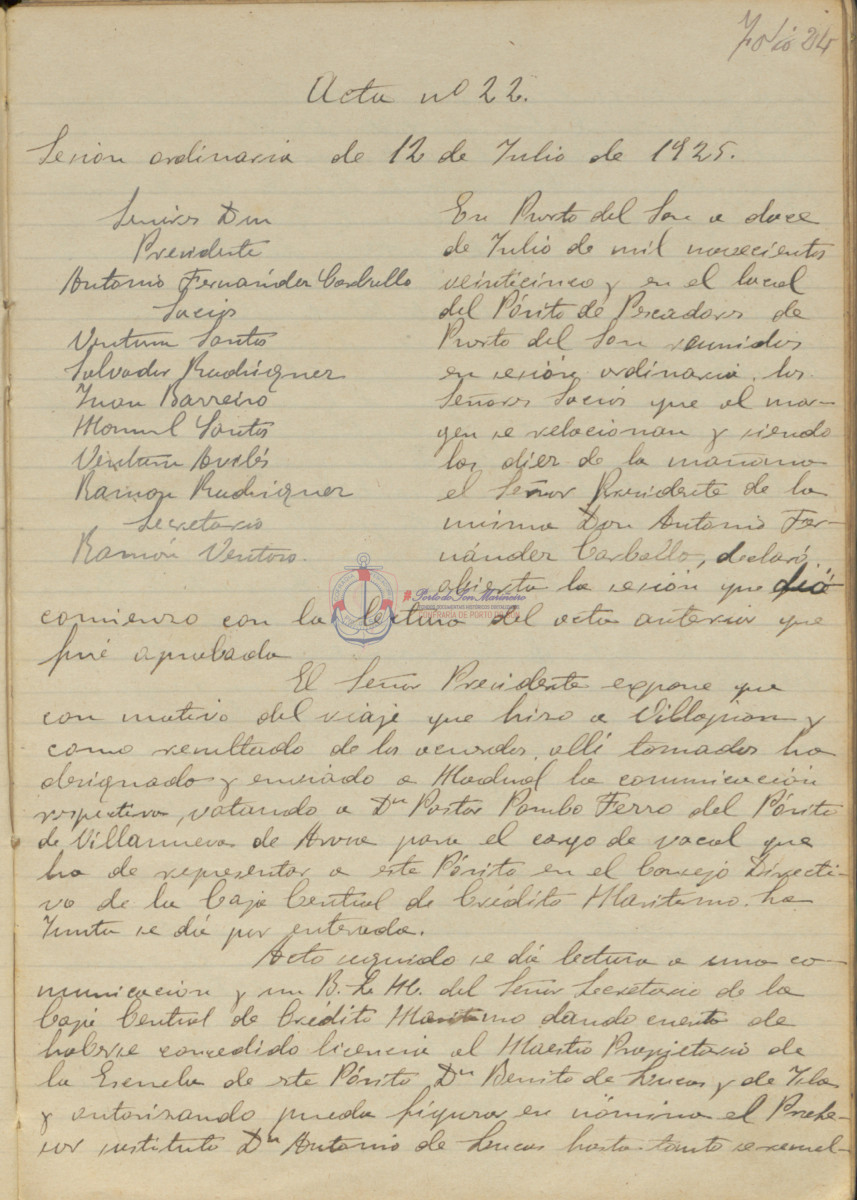 Folio 24
Acta nº 22.
Sesion ordinaria de 12 de Julio de 1925.
Señores Don
Presidente
Antonio Fernández Carballo
Socios
Ventura Santos
Salvador Rudriguez
Juan Barreiro
Manuel Santos
Ventura Avilés
Ramon Rudriguez
Secretario
Ramón Ventoso.
En Puerto del Son a doce
de Julio de mil novecientos
veinticinco y en el local
del Pósito de Pescadores de
Puerto del Son reunidos
en sesión ordinaria los
Señores Socios que al mar-
gen se relacionan y siendo
las diez de la mañana
el Señor Presidente de la
misma Don Antonio Fer-
nández Carballo, declaró
abierta la sesión que dió
comienzo con la lectura del acta anterior que
fué aprobada
El Señor Presidente expone que
con motivo del viaje que hizo a Villajuan y
como resultado de los acuerdos allí tomados ha
designado y enviado a Madrid la comunicación
respectiva, votando a Dn Pastor Pombo Ferro del Pósito
de Villanueva de Arosa para el cargo de vocal que
ha de representar a este Pósito en el Consejo Directi-
vo de la Caja Central de Crédito Maritimo. La
Junta se dá por enterada.
Acto seguido se dá lectura a una co-
municación y un B.L.M. del Señor Secretario de la
Caja Central de Crédito Maritimo dando cuenta de
haberse concedido licencia al Maestro Propietario de
la Escuela de este Pósito Dn Benito de Lucas y de
y autorizando pueda figurar en nómina el Profe-
sor sustituto Dn Antonio de Lucas hasta tanto se
#Porto do Son Mariñeiro